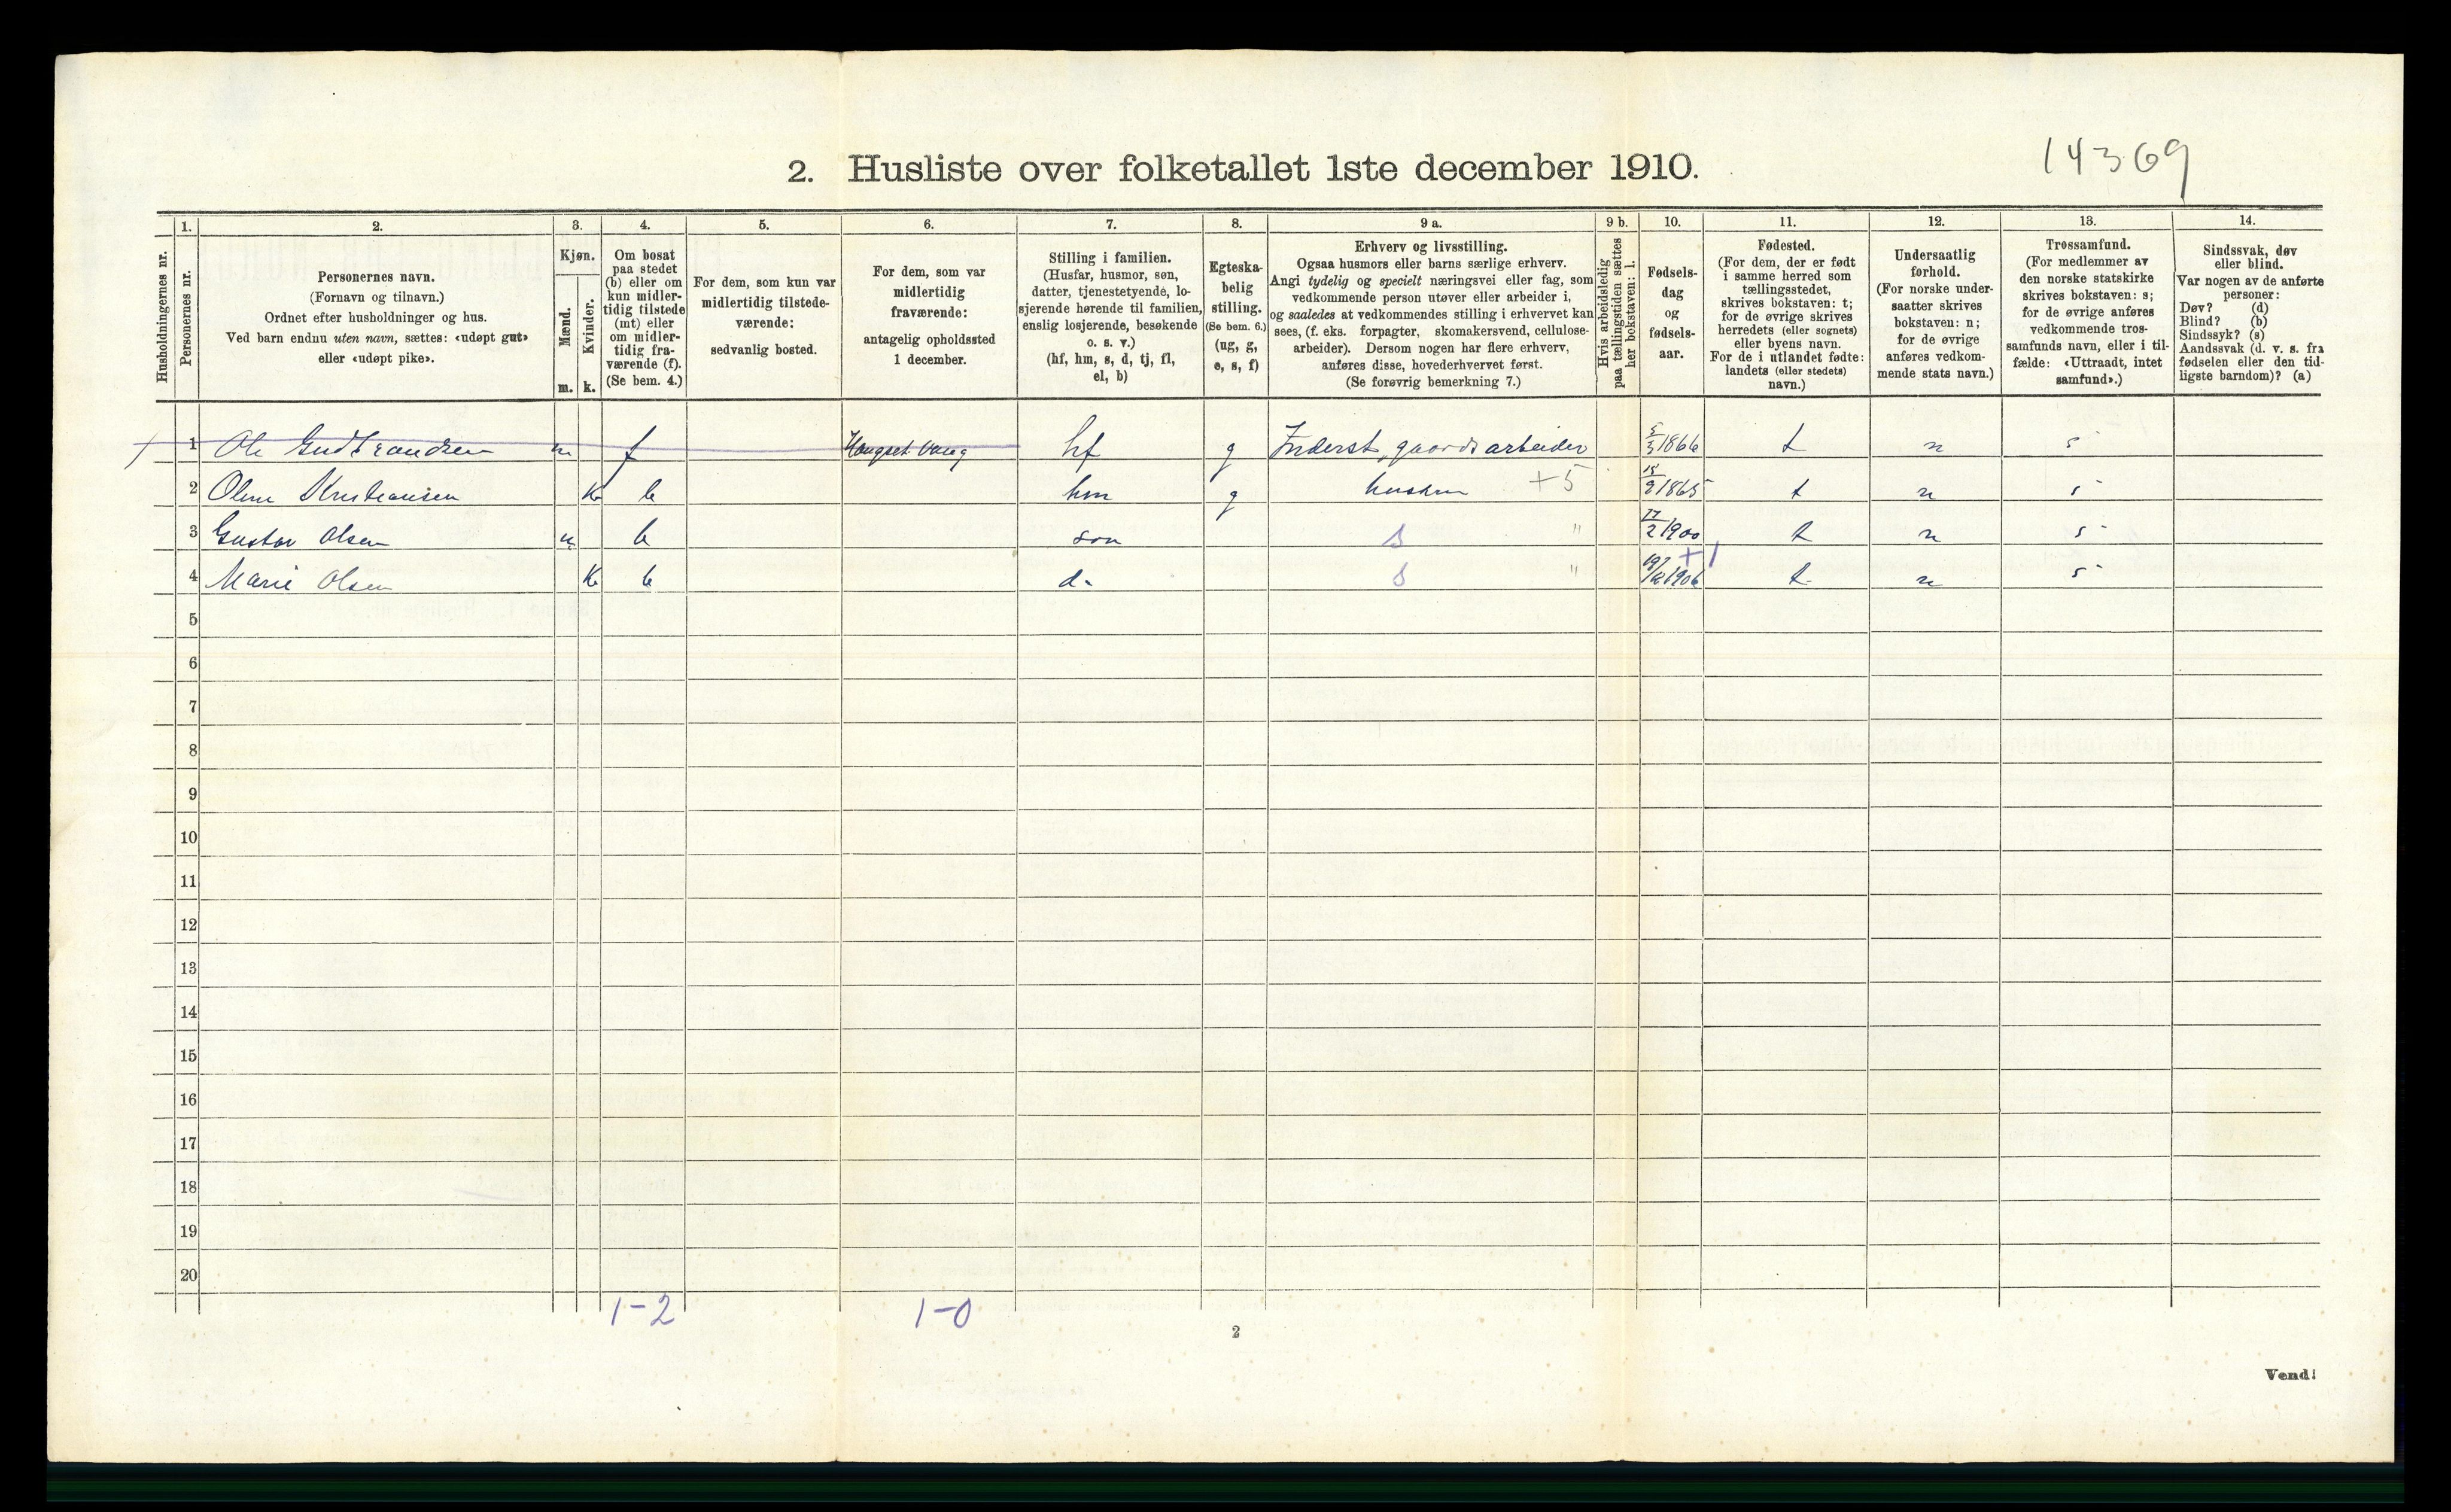 14369
2. Husliste over folketallet 1ste december 1910.
Husholdningernes nr.
1.
Personernes nr.
2.
Personernes navn.
(Fornavn og tilnavn.)
Ordnet efter husholdninger og hus.
Ved barn endnu uten navn, sættes: «udøpt gut»
eller «udøpt pike».
3.
Kjøn.
Mænd.
m.
Kvinder.
k.
4.
Om bosat
paa stedet
(b) eller om
kun midler-
tidig tilstede
(mt) eller
om midler-
tidig fra-
værende (f).
(Se bem. 4.)
5.
For dem, som kun var
midlertidig tilstede-
værende:
sedvanlig bosted.
6.
For dem, som var
midlertidig
fraværende:
antagelig opholdssted
1 december.
7.
Stilling i familien.
(Husfar, husmor, søn,
datter, tjenestetyende, lo-
sjerende hørende til familien,
enslig losjerende, besøkende
o. s. v.)
(hf, hm, s, d, tj, fl,
el, b)
8.
Egteska-
belig
stilling.
(Se bem. 6.)
(ug, g,
e, s, f)
9 a.
Erhverv og livsstilling.
Ogsaa husmors eller barns særlige erhverv.
Angi tydelig og specielt næringsvei eller fag, som
vedkommende person utøver eller arbeider i,
og saaledes at vedkommendes stilling i erhvervet kan
sees, (f. eks. forpagter, skomakersvend, cellulose-
arbeider). Dersom nogen har flere erhverv,
anføres disse, hovederhvervet først.
(Se forøvrig bemerkning 7.)
9 b.
Hvis arbeidsledig
paa tællingstiden sættes
her bokstaven: l.
10.
Fødsels-
dag
og
fødsels-
aar.
11.
Fødested.
(For dem, der er født
i samme herred som
tællingsstedet,
skrives bokstaven: t;
for de øvrige skrives
herredets (eller sognets)
eller byens navn.
For de i utlandet fødte:
landets (eller stedets)
navn.)
12.
Undersaatlig
forhold.
(For norske under-
saatter skrives
bokstaven: n;
for de øvrige
anføres vedkom-
mende stats navn.)
13.
Trossamfund.
(For medlemmer av
den norske statskirke
skrives bokstaven: s;
for de øvrige anføres
vedkommende tros-
samfunds navn, eller i til-
fælde: «Uttraadt, intet
samfund».)
14.
Sindssvak, døv
eller blind.
Var nogen av de anførte
personer:
Døv? (d)
Blind? (b)
Sindssyk? (s)
Aandssvak (d. v. s. fra
fødselen eller den tid-
ligste barndom)? (a)
1 Ole Gudbrandsen m f Vang hf g Inderst, gaardsarbeider 1866 t n s
2 Oline Kristiansen k b hm g hustru +5 1865 t n s
3 Gustav Olsen m b søn s " 17/2 1900 t n s
4 Marie Olsen k b d. s " +1 1906 t n s
5
6
7
8
9
10
11
12
13
14
15
16
17
18
19
20
1-2 1-0
2
Vend!